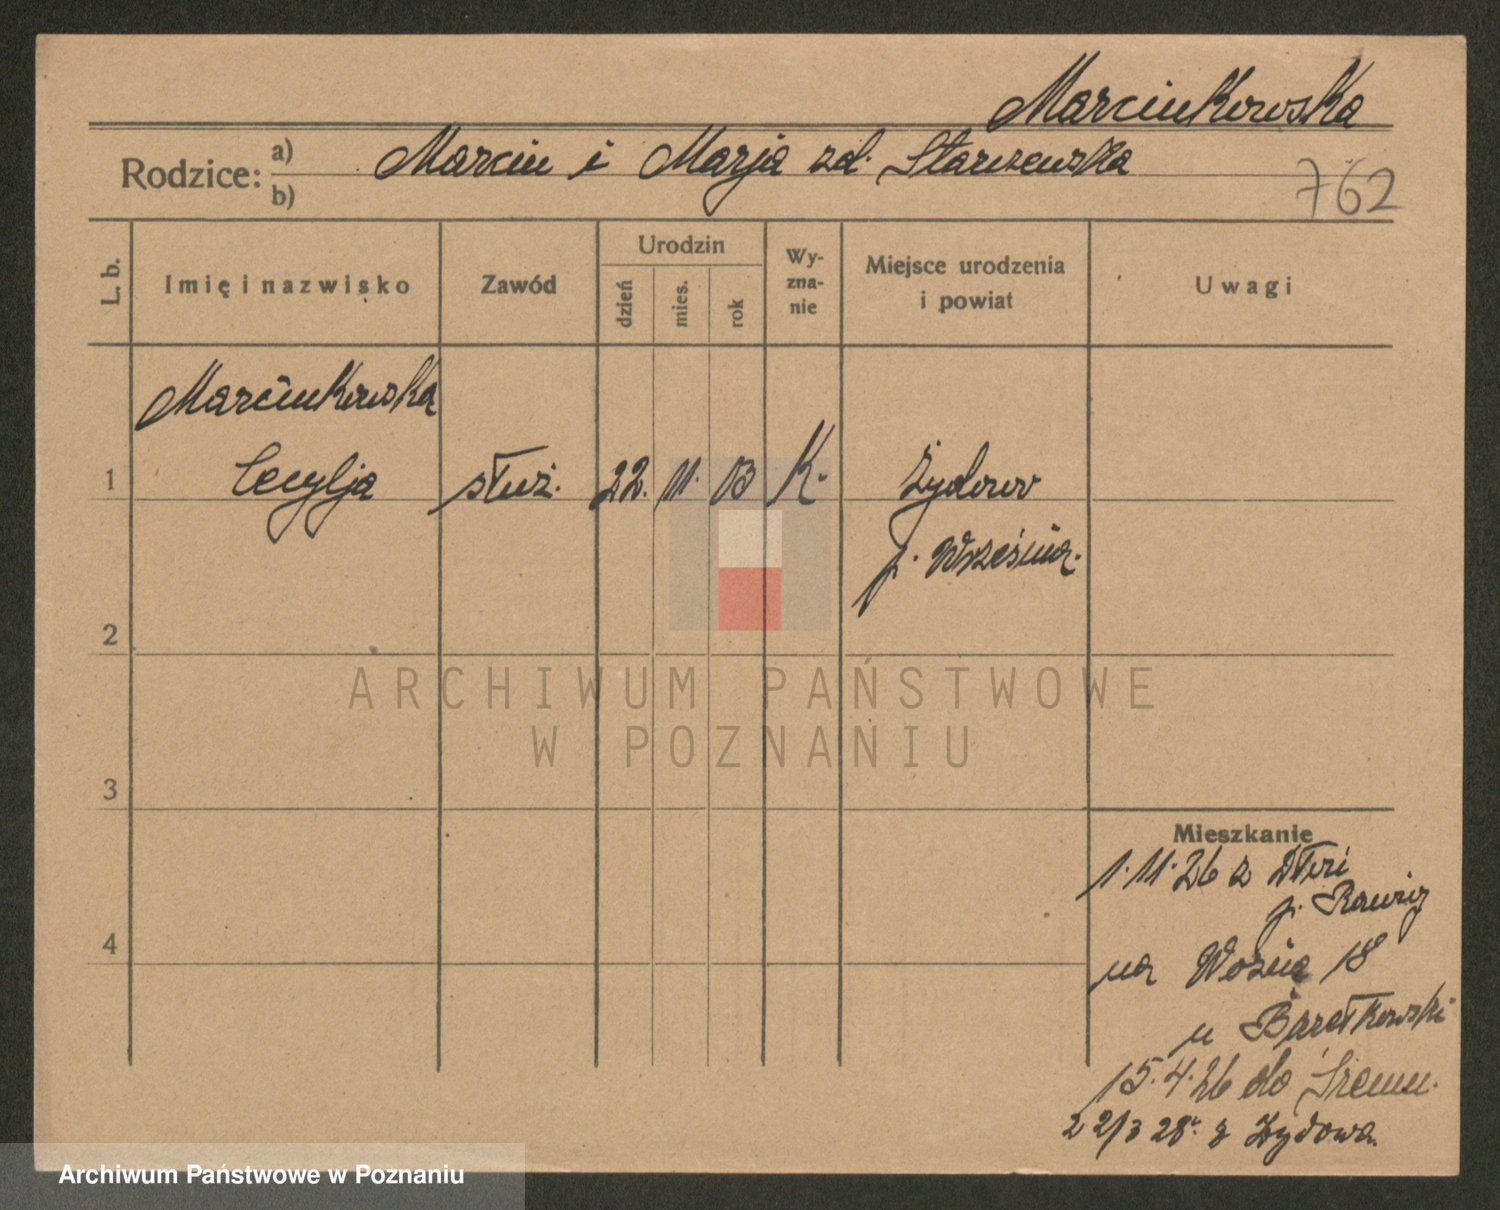 Marcinkowska
Rodzice: a) Marcin i Marja zd. Starczewska
b)
762
L. b.
Imię i nazwisko
Zawód
Urodzin
dzień
mies.
rok
Wy-
zna-
nie
Miejsce urodzenia
i powiat
Uwagi
Marcinkowska
1 Cecylja służ. 22. 11. 03 K. Żydowo
p. Września.
2
3
4
ARCHIWUM PAŃSTWOWE
W POZNANIU
Mieszkanie
1.11.26 z
p. Rawicz
na Woźną 18
u
15.4.26 do Śremu.
22/3 28 r. z Żydowa.
Archiwum Państwowe w Poznaniu